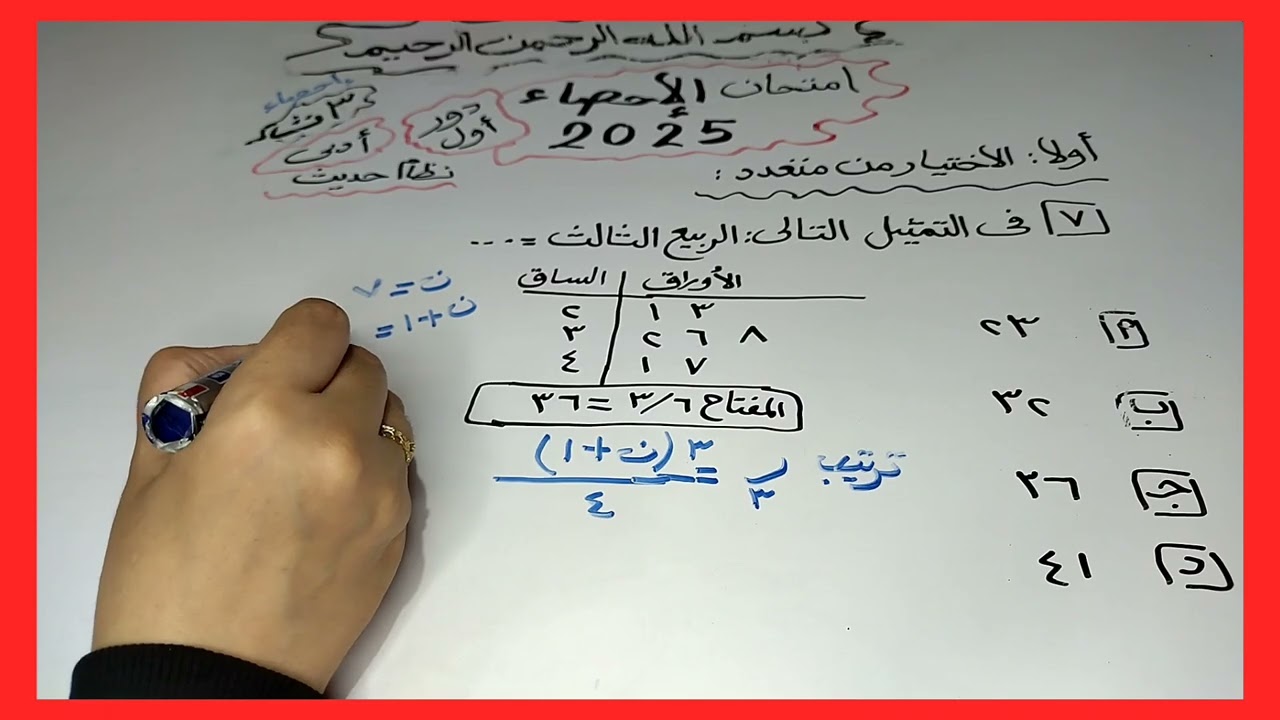 بسم الله الرحمن الرحيم
امتحان الإحصاء
2025
دور أول
إحصاء
أدبى
نظام حديث
أولا: الأختيار من متعدد:
٧ فى التمثيل التالى: الربيع الثالث = ....
الساق | الأوراق
٢ | ١ ٣
٣ | ٢ ٦ ٨
٤ | ١ ٧
المفتاح ٣/٦ = ٣٦
أ ٢٣
ب ٣٢
جـ ٣٦
د ٤١
ن = ٧
ن + ١ =
ترتيب ر٣ = ٣ (ن + ١) / ٤